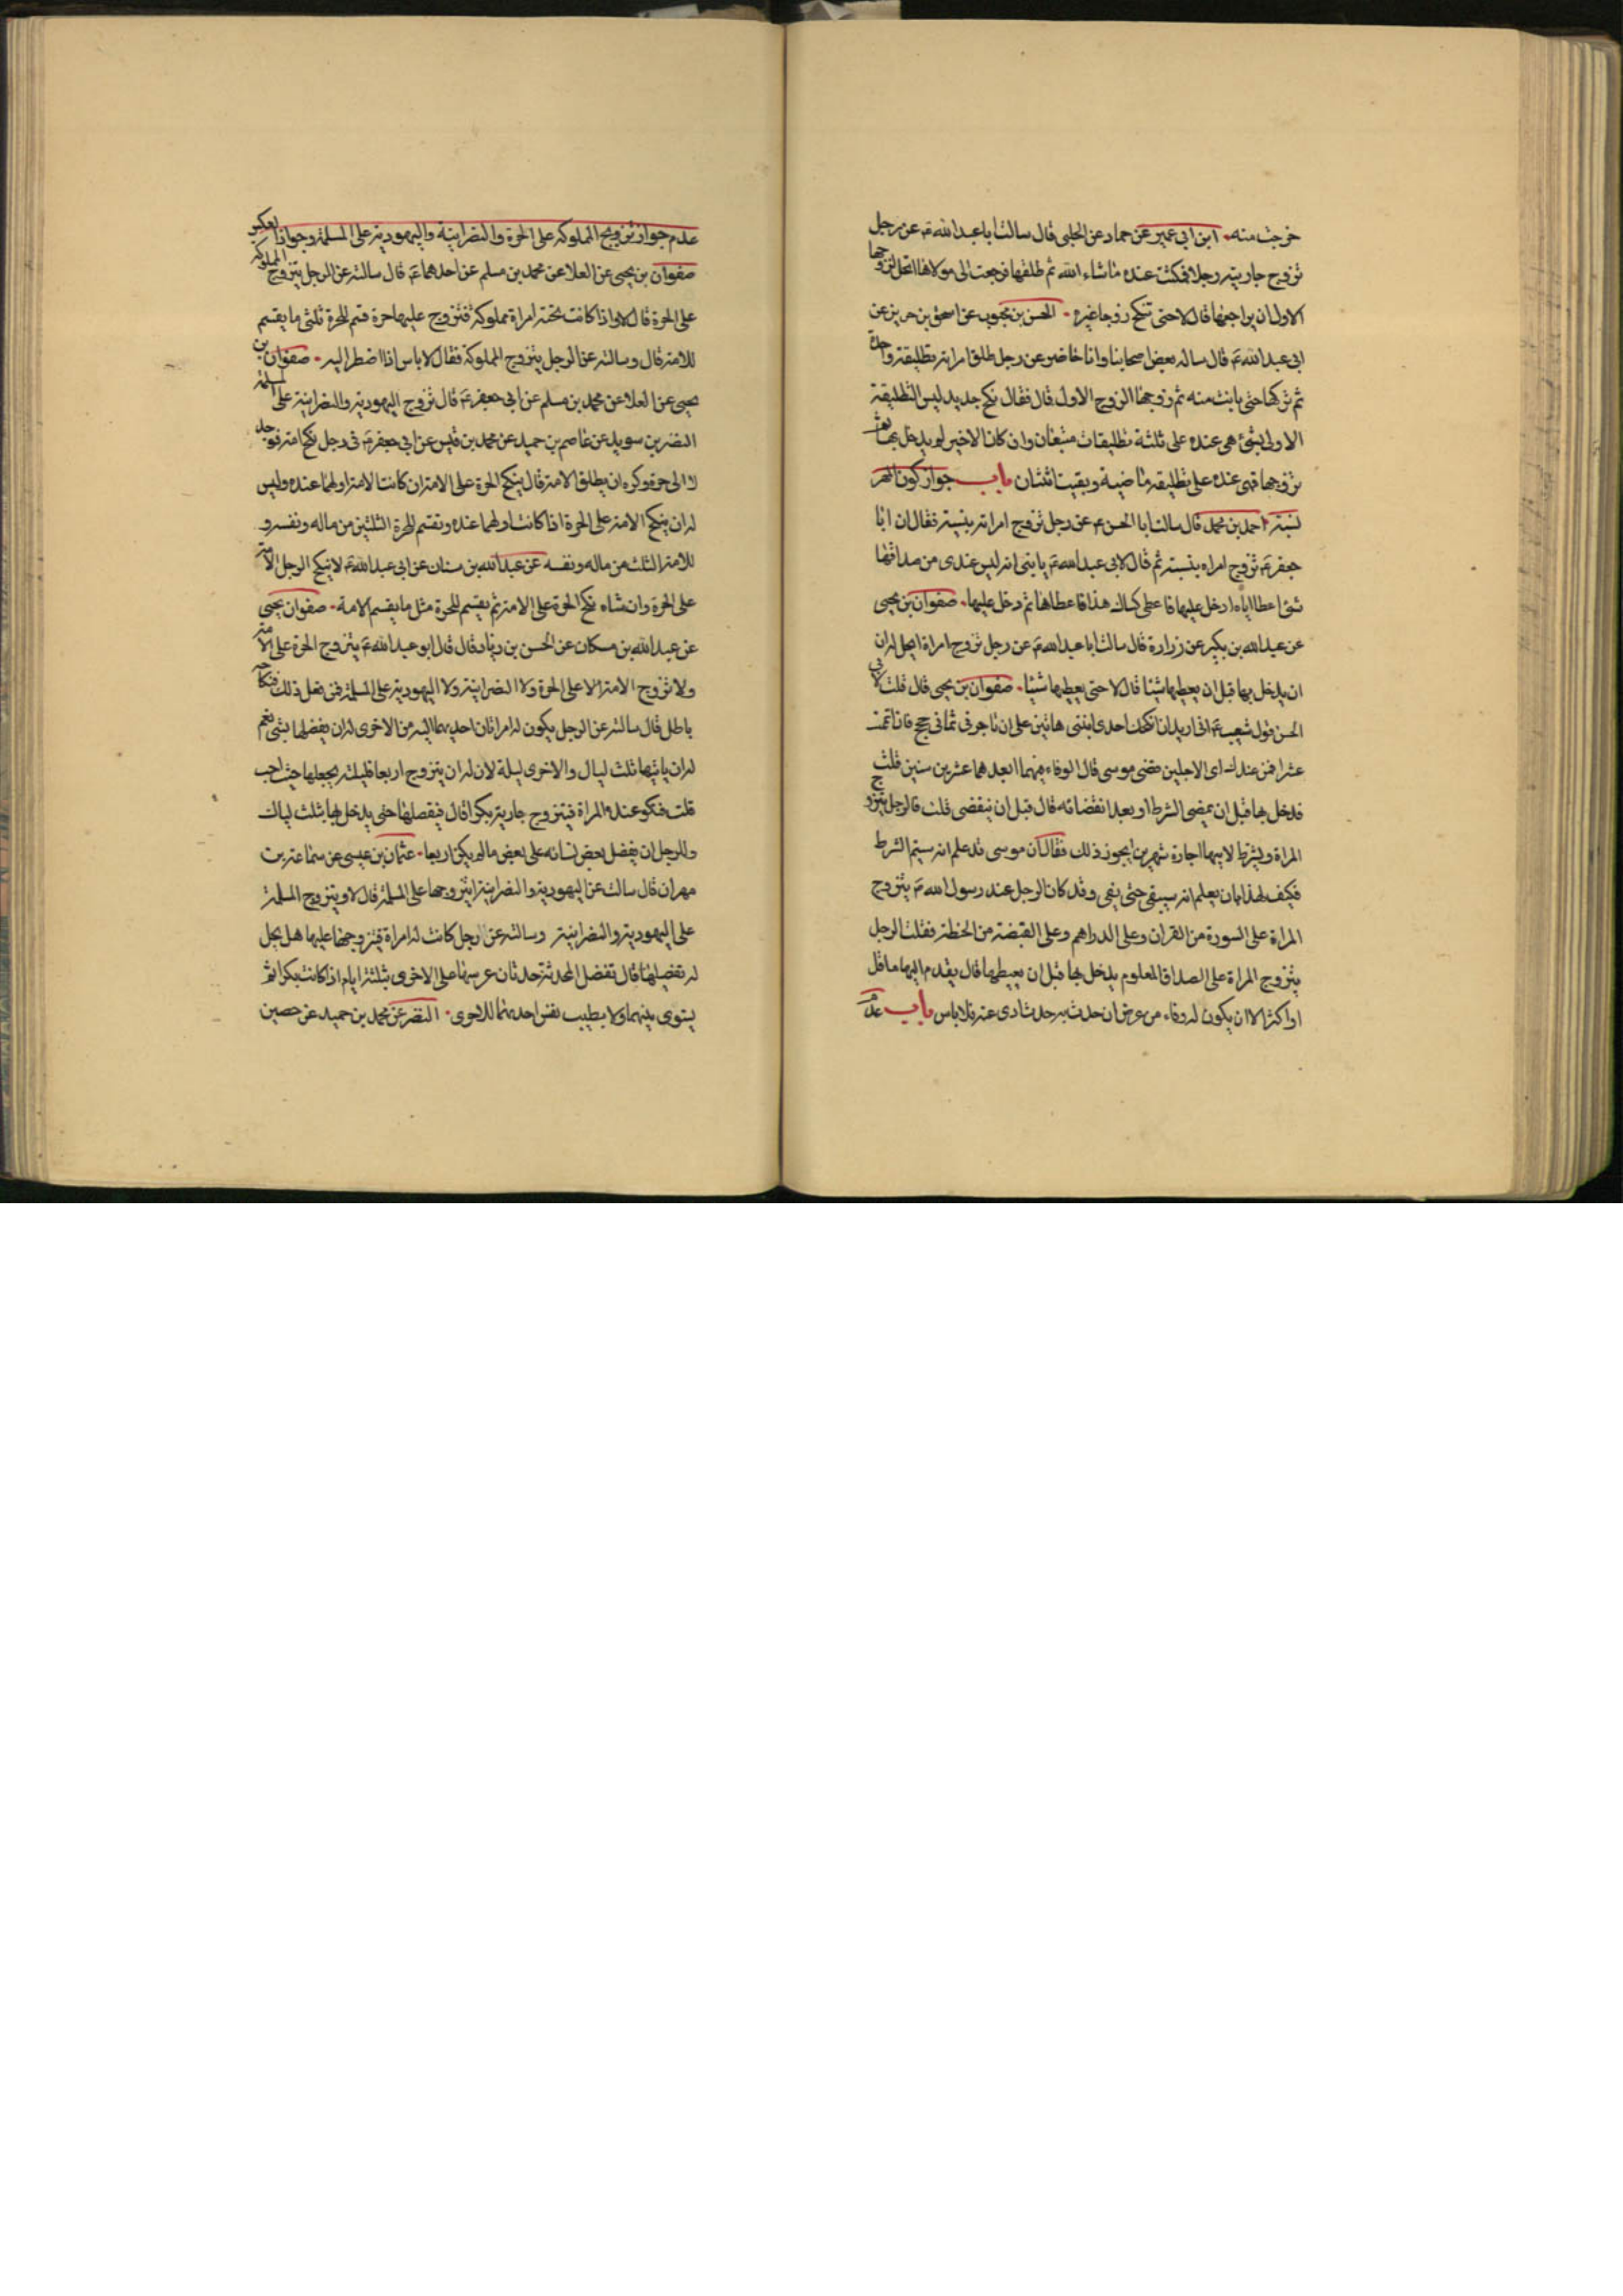 خرجت منه. ابن ابى عمير عن حماد عن الحلبى قال سالت ابا عبد الله ع عن رجل
تزوج جاريته رجلا فمكثت عنده ما شاء الله ثم طلقها فرجعت الى مولاها اتحل لزوجها
الاول ان يراجعها قال لا حتى تنكح زوجا غيره. الحسن بن محبوب عن اسحق بن حريز عن
ابى عبد الله ع قال ساله بعض اصحابنا وانا حاضر عن رجل طلق امراته تطليقة واحدة
ثم تركها حتى بانت منه ثم تزوجها الزوج الاول قال فقال نكح جديد ليس التطليقة
الاولى بشئ هى عنده على ثلثة تطليقات متبعان وان كان الاخير لم يدخل بها
تزوجها فهى عنده على تطليقة ماضية وبقيت اثنتان باب جواز كون المهر
نسية احمد بن محمد قال سالت ابا الحسن ع عن رجل تزوج امراته بنسية فقال ان ابا
جعفر ع تزوج امراه بنسية ثم قال لابى عبد الله ع يا بنى انه ليس عندى من صداقها
شئ اعطا اياه ادخل عليها فاعطى كساك هذا فاعطاها ثم دخل عليها. صفوان بن يحيى
عن عبد الله بن بكير عن زرارة قال سالت ابا عبد الله ع عن رجل تزوج امراة ايحل له ان
ان يدخل بها قبل ان يعطيها شيئا قال لا حتى يعطيها شيئا. صفوان بن يحيى قال قلت لابى
الحسن قول شعيب ع انى اريد ان انكحك احدى ابنتى هاتين على ان تاجرنى ثمانى حجج فان اتممت
عشرا فمن عندك اى الاجلين قضى موسى قال الوفاء منهما ابعدهما عشرين سنين قلت
فدخل بها قبل ان يمضى الشرط او بعد انقضائه قال قبل ان ينقضى قلت فالرجل يتزوج
المراة ويشترط لابيها اجارة شهرين ايجوز ذلك فقال ان موسى قد علم انه سيتم الشرط
فكيف لهذا بان يعلم انه سيبقى حتى يفى وقد كان الرجل عند رسول الله ص يتزوج
المراة على السورة من القران وعلى الدراهم وعلى القبضة من الحنطة فقلت الرجل
يتزوج المراة على الصداق المعلوم يدخل بها قبل ان يعطيها قال يقدم اليها ما قل
او اكثر الا ان يكون له وفاء من عرض ان حدث به حدث ادى عنه فلا باس باب عدم
عدم جواز تزويج المملوكه على الحرة والنصرانية واليهودية على المسلمة وجواز العكس
صفوان بن يحيى عن العلا عن محمد بن مسلم عن احدهما ع قال سالته عن الرجل يتزوج المملوكة
على الحرة قال لا واذا كانت تحته امراة مملوكة فتزوج عليها حرة قسم للحرة ثلثى ما يقسم
للامة قال وسالته عن الرجل يتزوج المملوكة فقال لا باس اذا اضطر اليه. صفوان بن
يحيى عن العلا عن محمد بن مسلم عن ابى جعفر ع قال تزوج اليهودية والنصرانية على المسلمة
النضر بن سويد عن عاصم بن حميد عن محمد بن قيس عن ابى جعفر ع فى رجل نكح امة فوجد
لا الى حرة وكره ان يطلق الامة قال ينكح الحرة على الامة ان كانت الامة اولهما عنده وليس
له ان ينكح الامة على الحرة اذا كانت اولهما عنده وتقسم للحرة الثلثين من ماله ونفسه و
للامة الثلث من ماله ونفسه عن عبد الله بن سنان عن ابى عبد الله ع لا ينكح الرجل الامة
على الحرة وان شاء نكح الحرة على الامة ثم يقسم للحرة مثل ما يقسم الامة. صفوان يحيى
عن عبد الله بن مسكان عن الحسن بن زياد قال قال ابو عبد الله ع يتزوج الحرة على الامة
ولا تزوج الامة الا على الحرة ولا النصرانية ولا اليهودية على المسلمة فمن فعل ذلك فنكاحه
باطل قال سالته عن الرجل يكون له امراتان احديهما اليه من الاخرى له ان يفضلها بشئ نعم
له ان ياتيها ثلث ليال والاخرى ليلة لان له ان يتزوج اربعا فليلته يجعلها حيث احب
قلت فتكون عنده المراة فيتزوج جارية بكرا قال فيفضلها حتى يدخل بها بثلث ليال
وللرجل ان يفضل بعض نسائه على بعض ما لم يكن اربعا. عثمان بن عيسى عن سماعة بن
مهران قال سالت عن اليهودية والنصرانية ايتزوجها على المسلمة قال لا ويتزوج المسلمة
على اليهودية والنصرانية وسالته عن رجل كانت له امراة فيتزوجها عليها هل يحل
له تفضيلها قال تفضل المحدثة حدثان عرسها على الاخرى بثلثة ايام اذا كانت بكرا ثم
يسوى بينهما ولا بطيب نفس احديهما للاخرى. النضر عن محمد بن حميد عن حصين